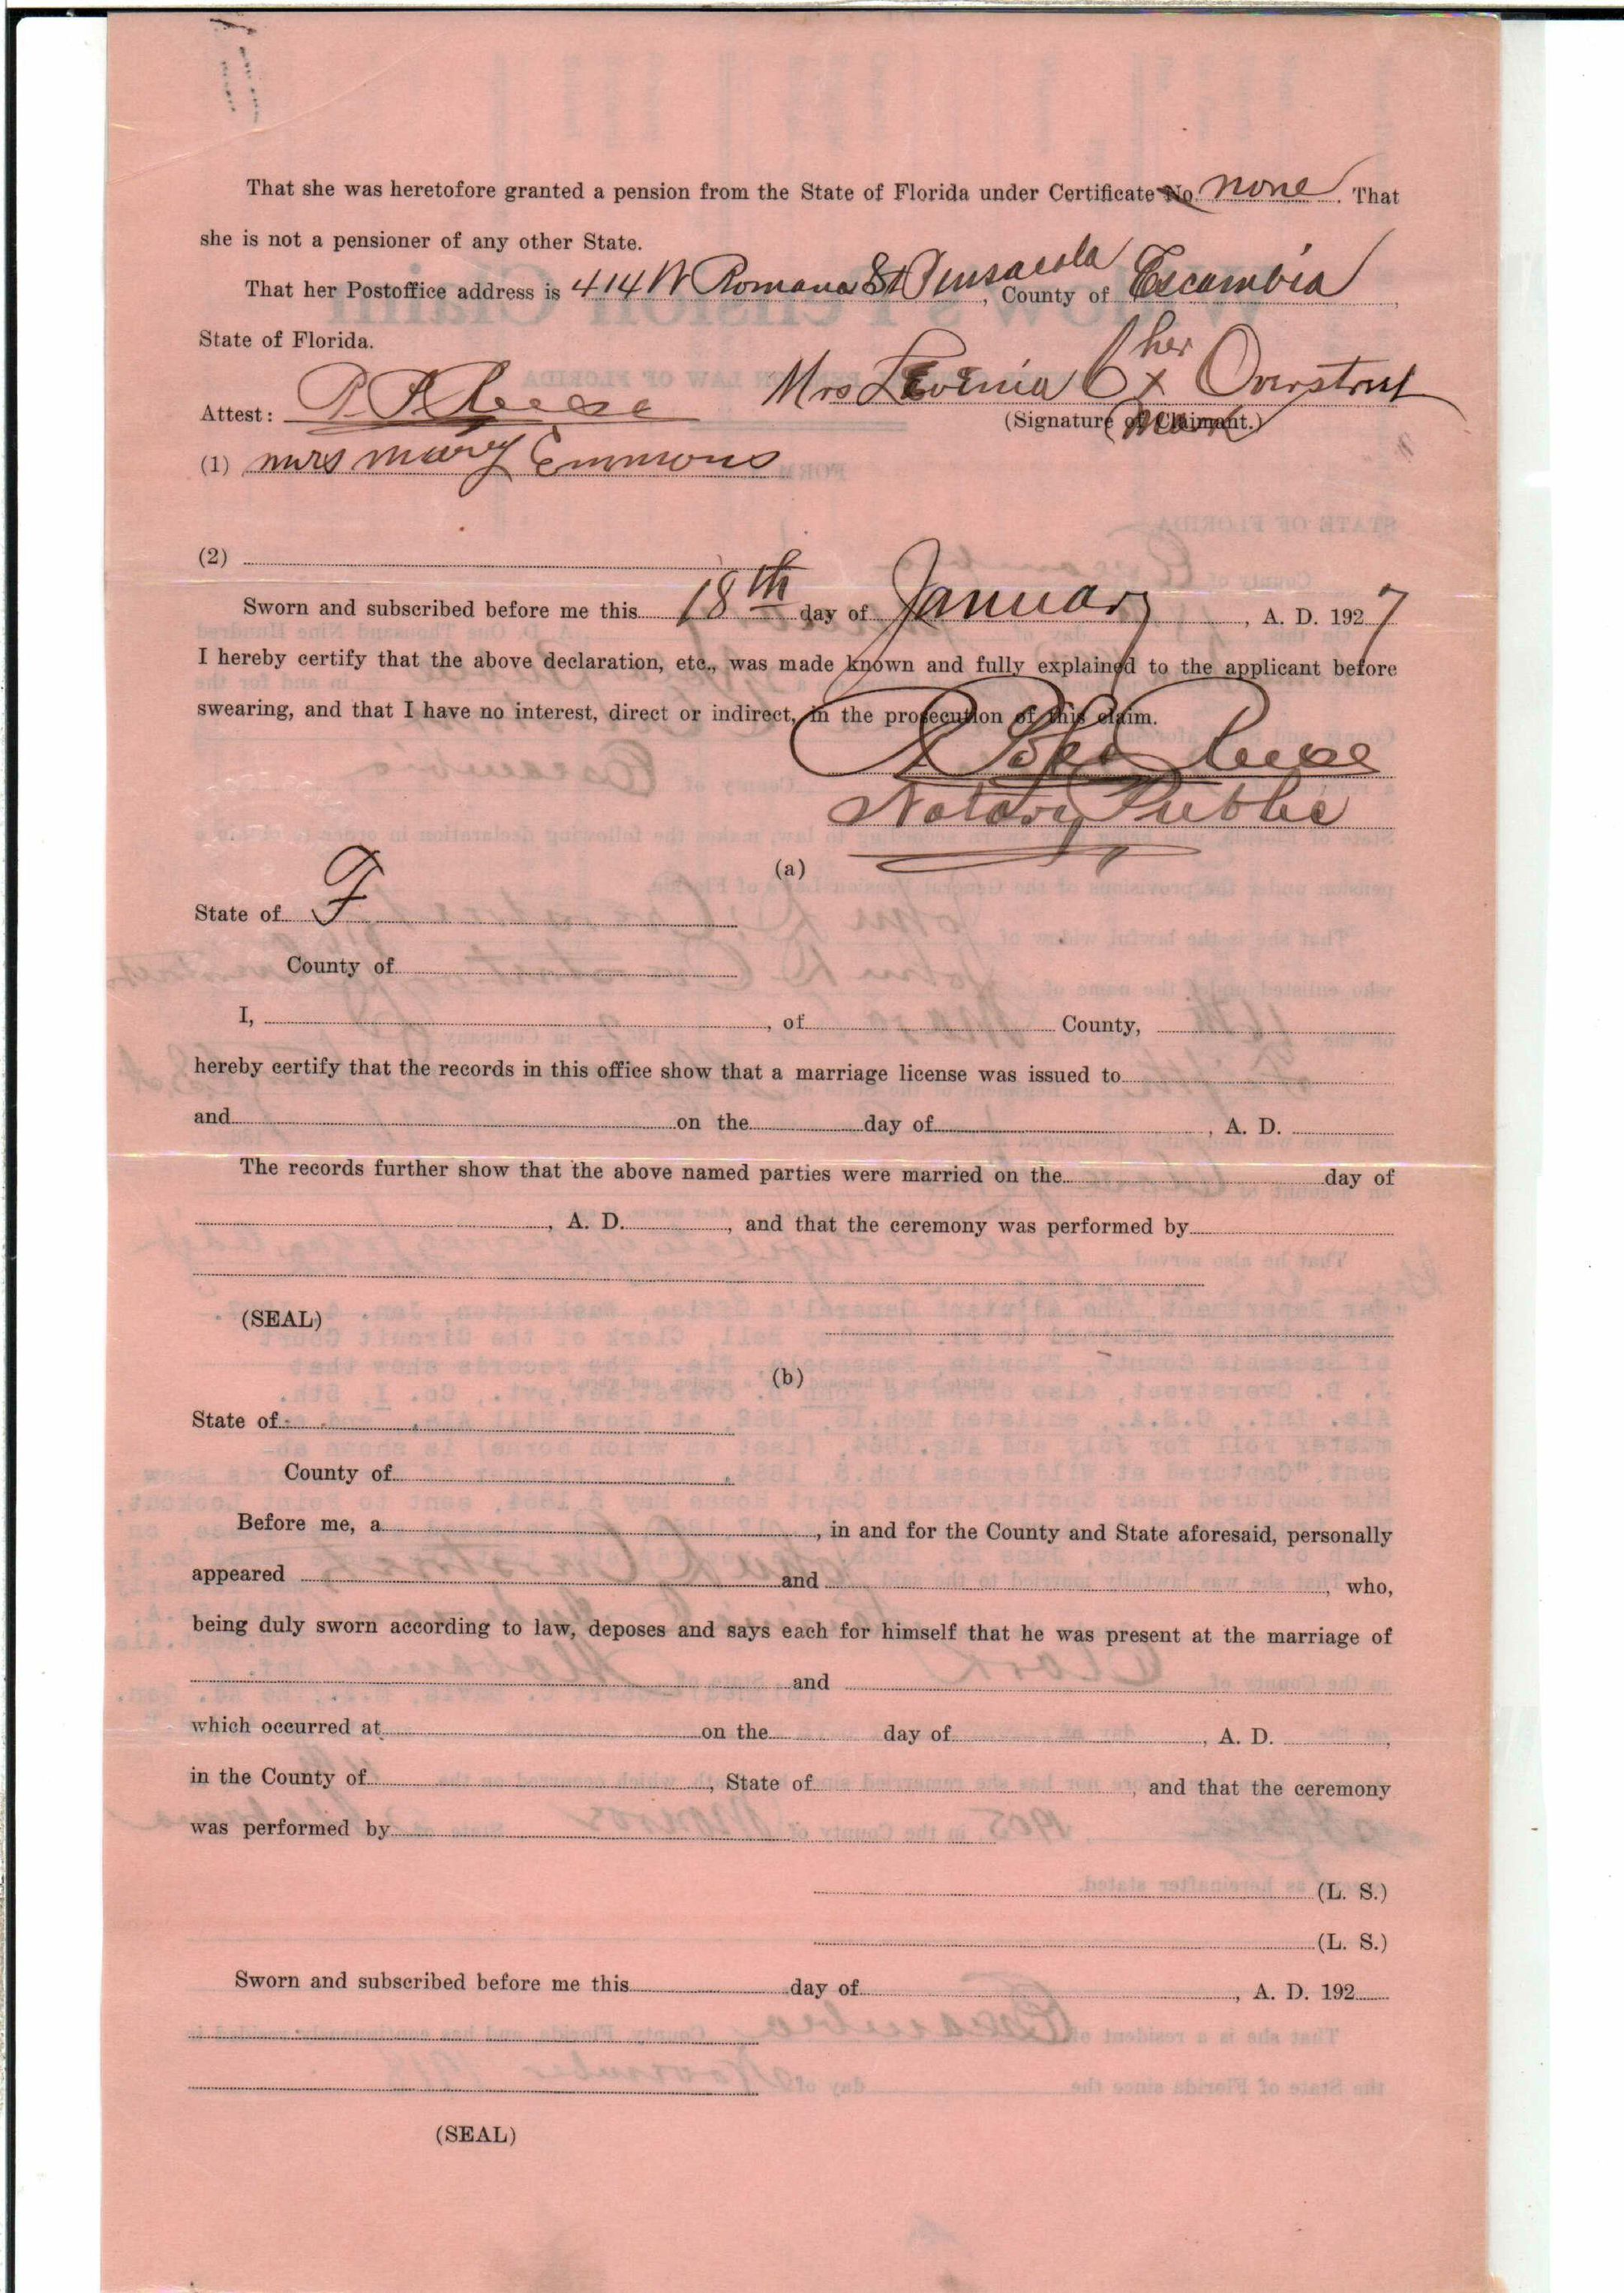 That she was heretofore granted a pension from the State of Florida under Certificate No. none. That
she is not a pensioner of any other State.
That her Postoffice address is 414 W Romana St Pensacola, County of Escambia,
State of Florida.
her
Attest: Mrs Levinia x Overstreet
(Signature of Claimant.)
mark
(1) mrs mary Emmons
(2)
Sworn and subscribed before me this 18th day of January, A. D. 1927
I hereby certify that the above declaration, etc., was made known and fully explained to the applicant before
swearing, and that I have no interest, direct or indirect, in the prosecution of this claim.
Notary Public
(a)
State of F
County of
I, , of County,
hereby certify that the records in this office show that a marriage license was issued to
and on the day of , A. D.
The records further show that the above named parties were married on the day of
, A. D. , and that the ceremony was performed by
(SEAL)
(b)
State of
County of
Before me, a , in and for the County and State aforesaid, personally
appeared and , who,
being duly sworn according to law, deposes and says each for himself that he was present at the marriage of
and
which occurred at on the day of , A. D. ,
in the County of , State of , and that the ceremony
was performed by
(L. S.)
(L. S.)
Sworn and subscribed before me this day of , A. D. 192
(SEAL)